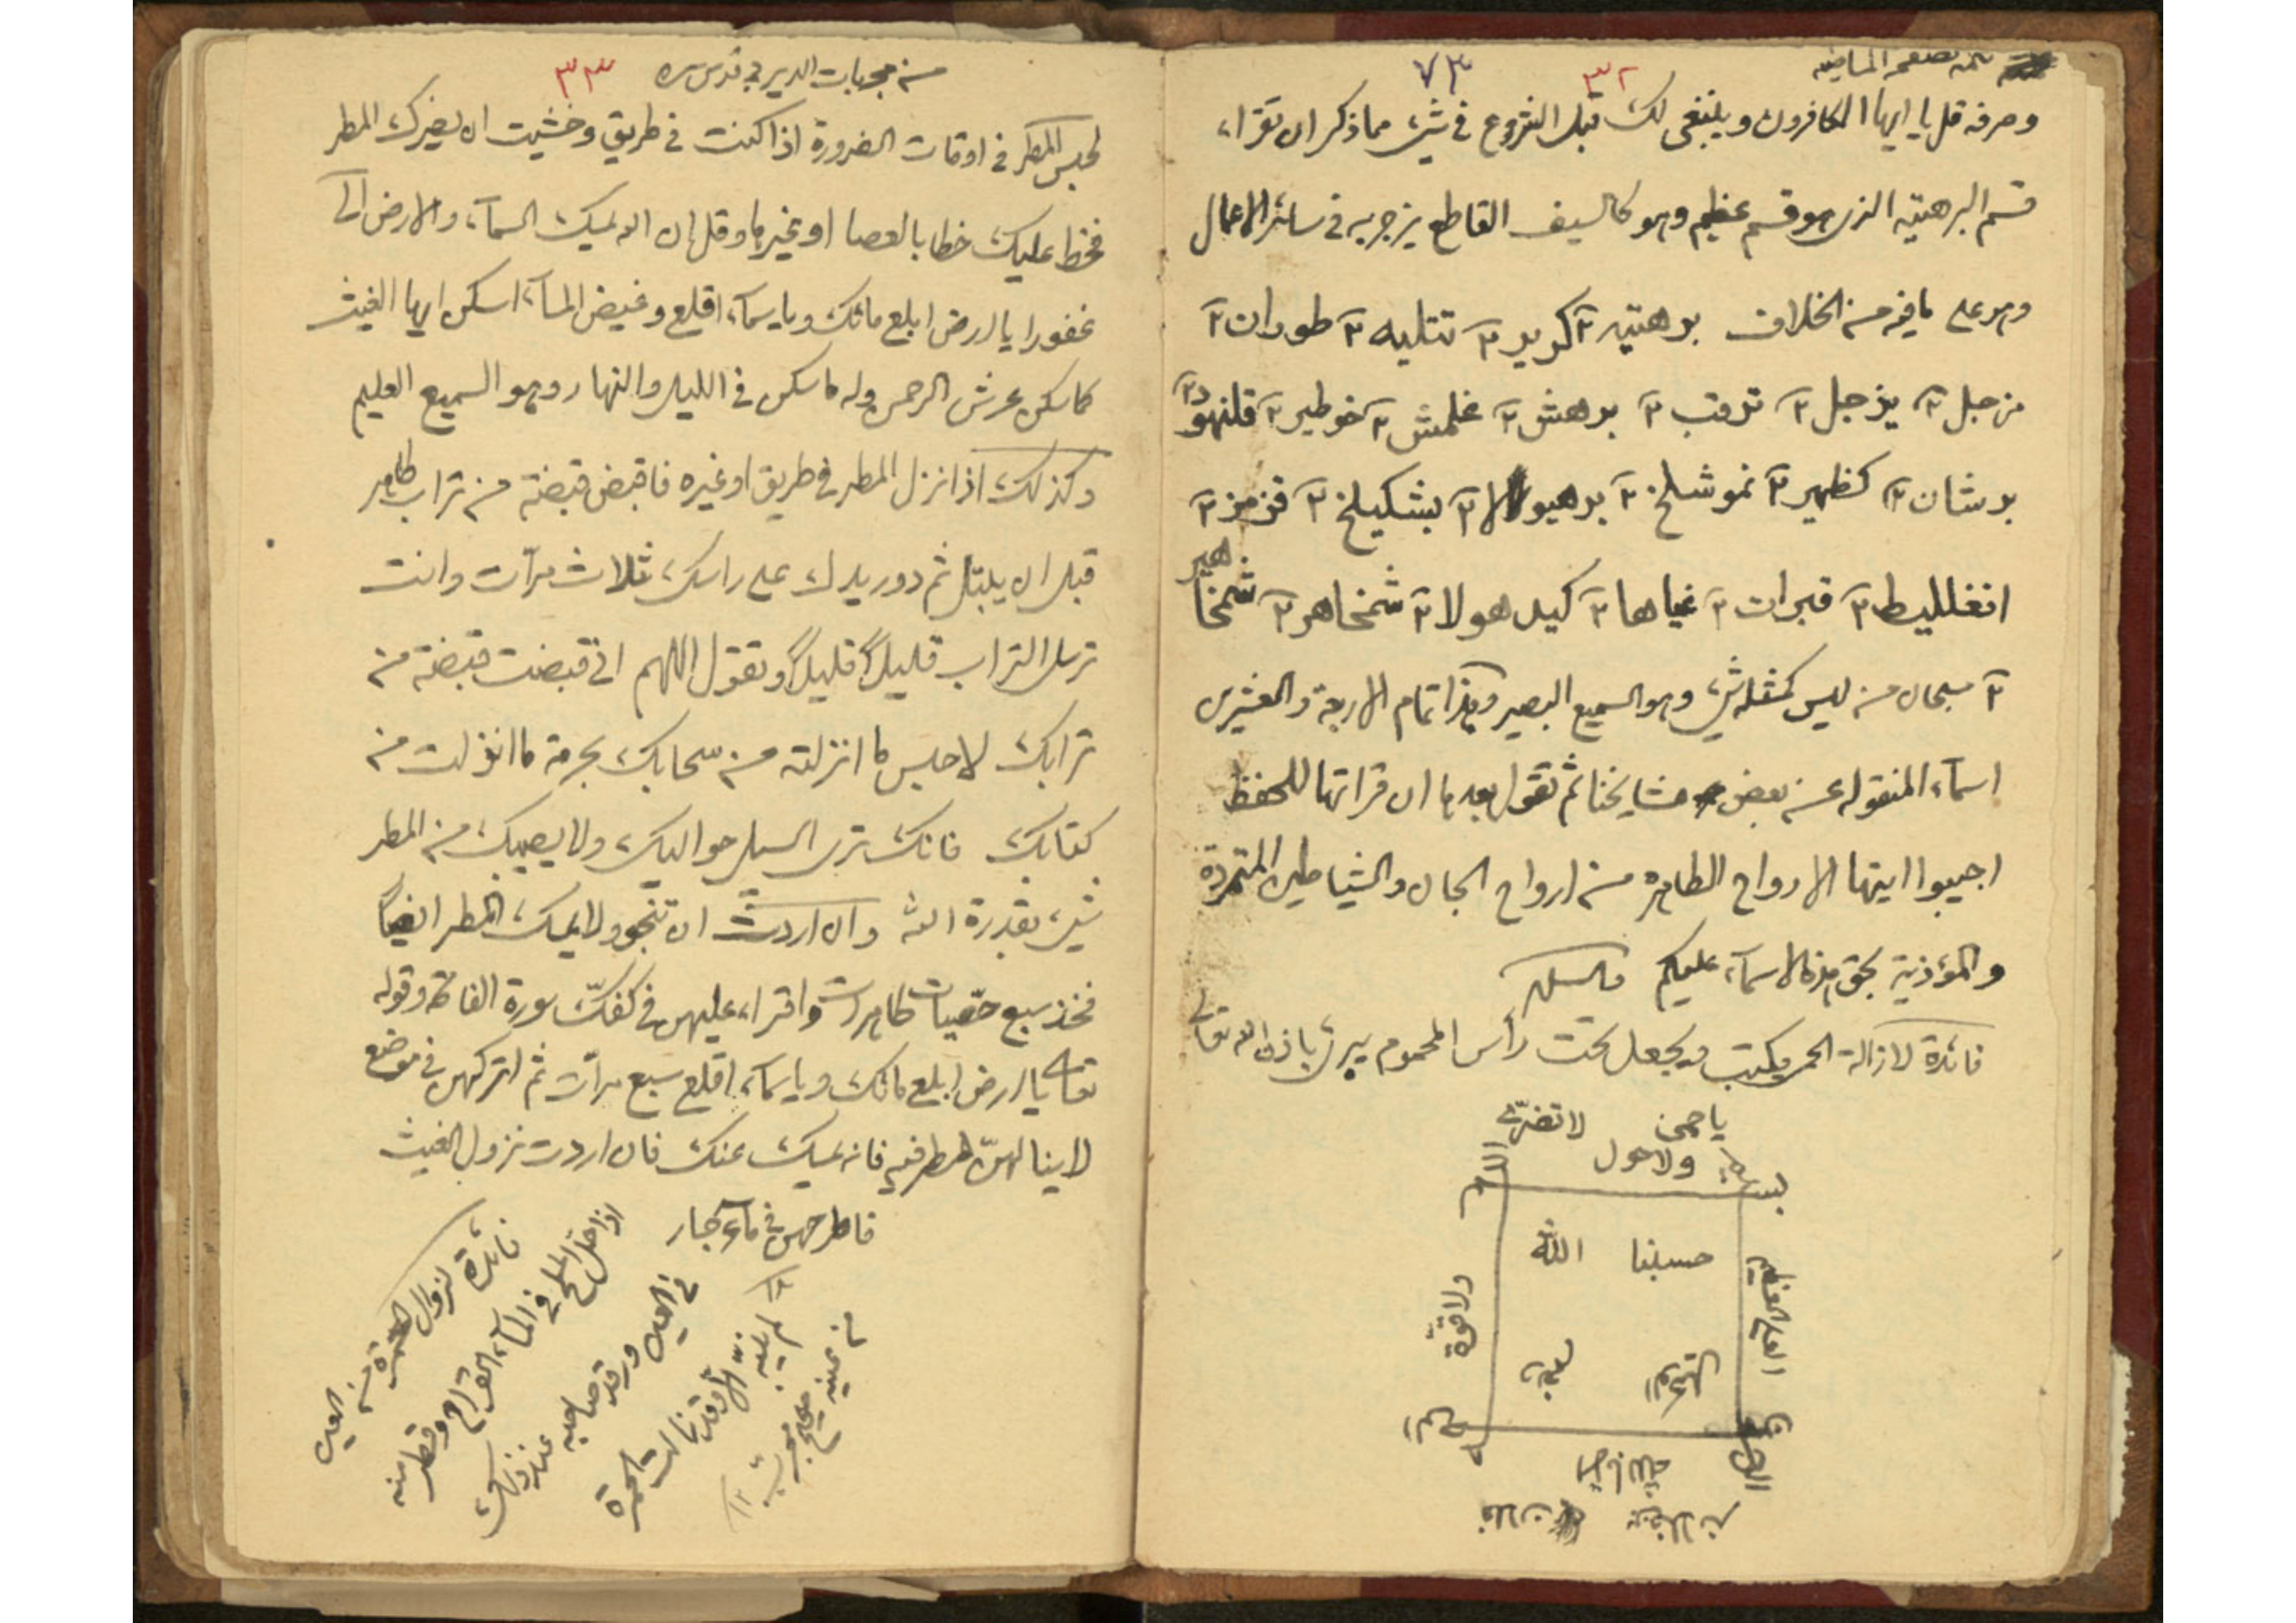 تتمة الصفحة الماضية
٣٢
٧٣
وصرفه قل يا ايها الكافرون وينبغى لك قبل الشروع فى شئ مما ذكر ان تقراء
قسم البرهتيه الذى هو قسم عظيم وهو كالسيف القاطع يزجر به فى سائر الاعمال
وهو على ما فيه من الخلاف برهتيه ٢ كرير ٢ تتليه ٢ طوران ٢
مزجل ٢ بزجل ٢ ترقب ٢ برهش ٢ غلمش ٢ خوطير ٢ قلنهود ٢
برشان ٢ كظهير ٢ نموشلخ ٢ برهيولا ٢ بشكيلخ ٢ قزمز ٢
انغلليط ٢ قبرات ٢ غياها ٢ كيدهولا ٢ شمخاهر ٢ شمخاهير
٢ سبحان من ليس كمثله شئ وهو السميع البصير وهذا تمام الاربعة والعشرين
اسمآء المنقوله عن بعض مشايخنا ثم تقول بعدها ان قراتها للحفظ
اجيبوا ايتها الارواح الطاهره من ارواح الجان والشياطين المتمردة
والمؤذية بحق هذه الاسمآء عليكم
فائدة لازالة الحمى يكتب ويجعل تحت رأس المحموم يبرئ باذن الله تعالى
يا حمى لا تضرى
بسم الله ولا حول
ولا قوة
العلى العظيم
حسبنا الله
من مجربات الديربى قدس سره
٣٣
لحبس المطر فى اوقات الضرورة اذا كنت فى طريق وخشيت ان يضرك المطر
فخط عليك خطا بالعصا او بغيرها وقل ان الله يمسك السمآء والارض الى
غفورا يا ارض ابلعى مائك ويا سمآء اقلعى وغيض المآء اسكن ايها الغيث
كما سكن عرش الرحمن وله ما سكن فى الليل والنهار وهو السميع العليم
وكذلك اذا نزل المطر فى طريق او غيره فاقبض قبضة من تراب طاهر
قبل ان يبتل ثم دور يدك على راسك ثلاث مرآت وانت
ترسل التراب قليلاً قليلاً وتقول اللهم انى قبضت قبضة من
ترابك لاحبس ما انزلته من سحابك بحرمة ما انزلت من
كتابك فانك ترى السيل حواليك ولا يصيبك من المطر
شئ بقدرة الله وان اردت ان تنجو ولا يمسك المطر ايضاً
فخذ سبع حصيات طاهرات واقراء عليهن فى كفك سورة الفاتحة وقوله
تعالى يا ارض ابلعى مائك ويا سمآء اقلعى سبع مرآت ثم اتركهن فى موضع
لا ينالهن المطر فيه فانه يمسك عنك فان اردت نزول الغيث
فاطرحهن فى مآء جار
فائدة لزوال الحمرة من العين
اذا حل الملح فى المآء القراح وقطر منه
فى العين ورقد صاحبه عند ذلك
لم ينتبه الا وقد زالت الحمرة
من عينه صحيح مجرب ١٢